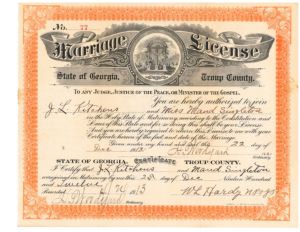 No. 77
Marriage License
State of Georgia, Troup County.
To any Judge, Justice of the Peace, or Minister of the Gospel.
You are hereby authorized to join
J. L. Kitchens and Miss Maud Singleton
in the Holy State of Matrimony according to the Constitution and
Laws of this State and for so doing this shall be your License.
And you are hereby required to return this License to me with your
Certificate hereon of the fact and date of the Marriage.
Given under my hand and seal this 22 day of
Dec
STATE OF GEORGIA, Certificate TROUP COUNTY.
I Certify that J L Kitchens and Maud Singleton
were joined in Matrimony by me this 25 day of Dec Nineteen Hundred
and Twelve
W L Hardy